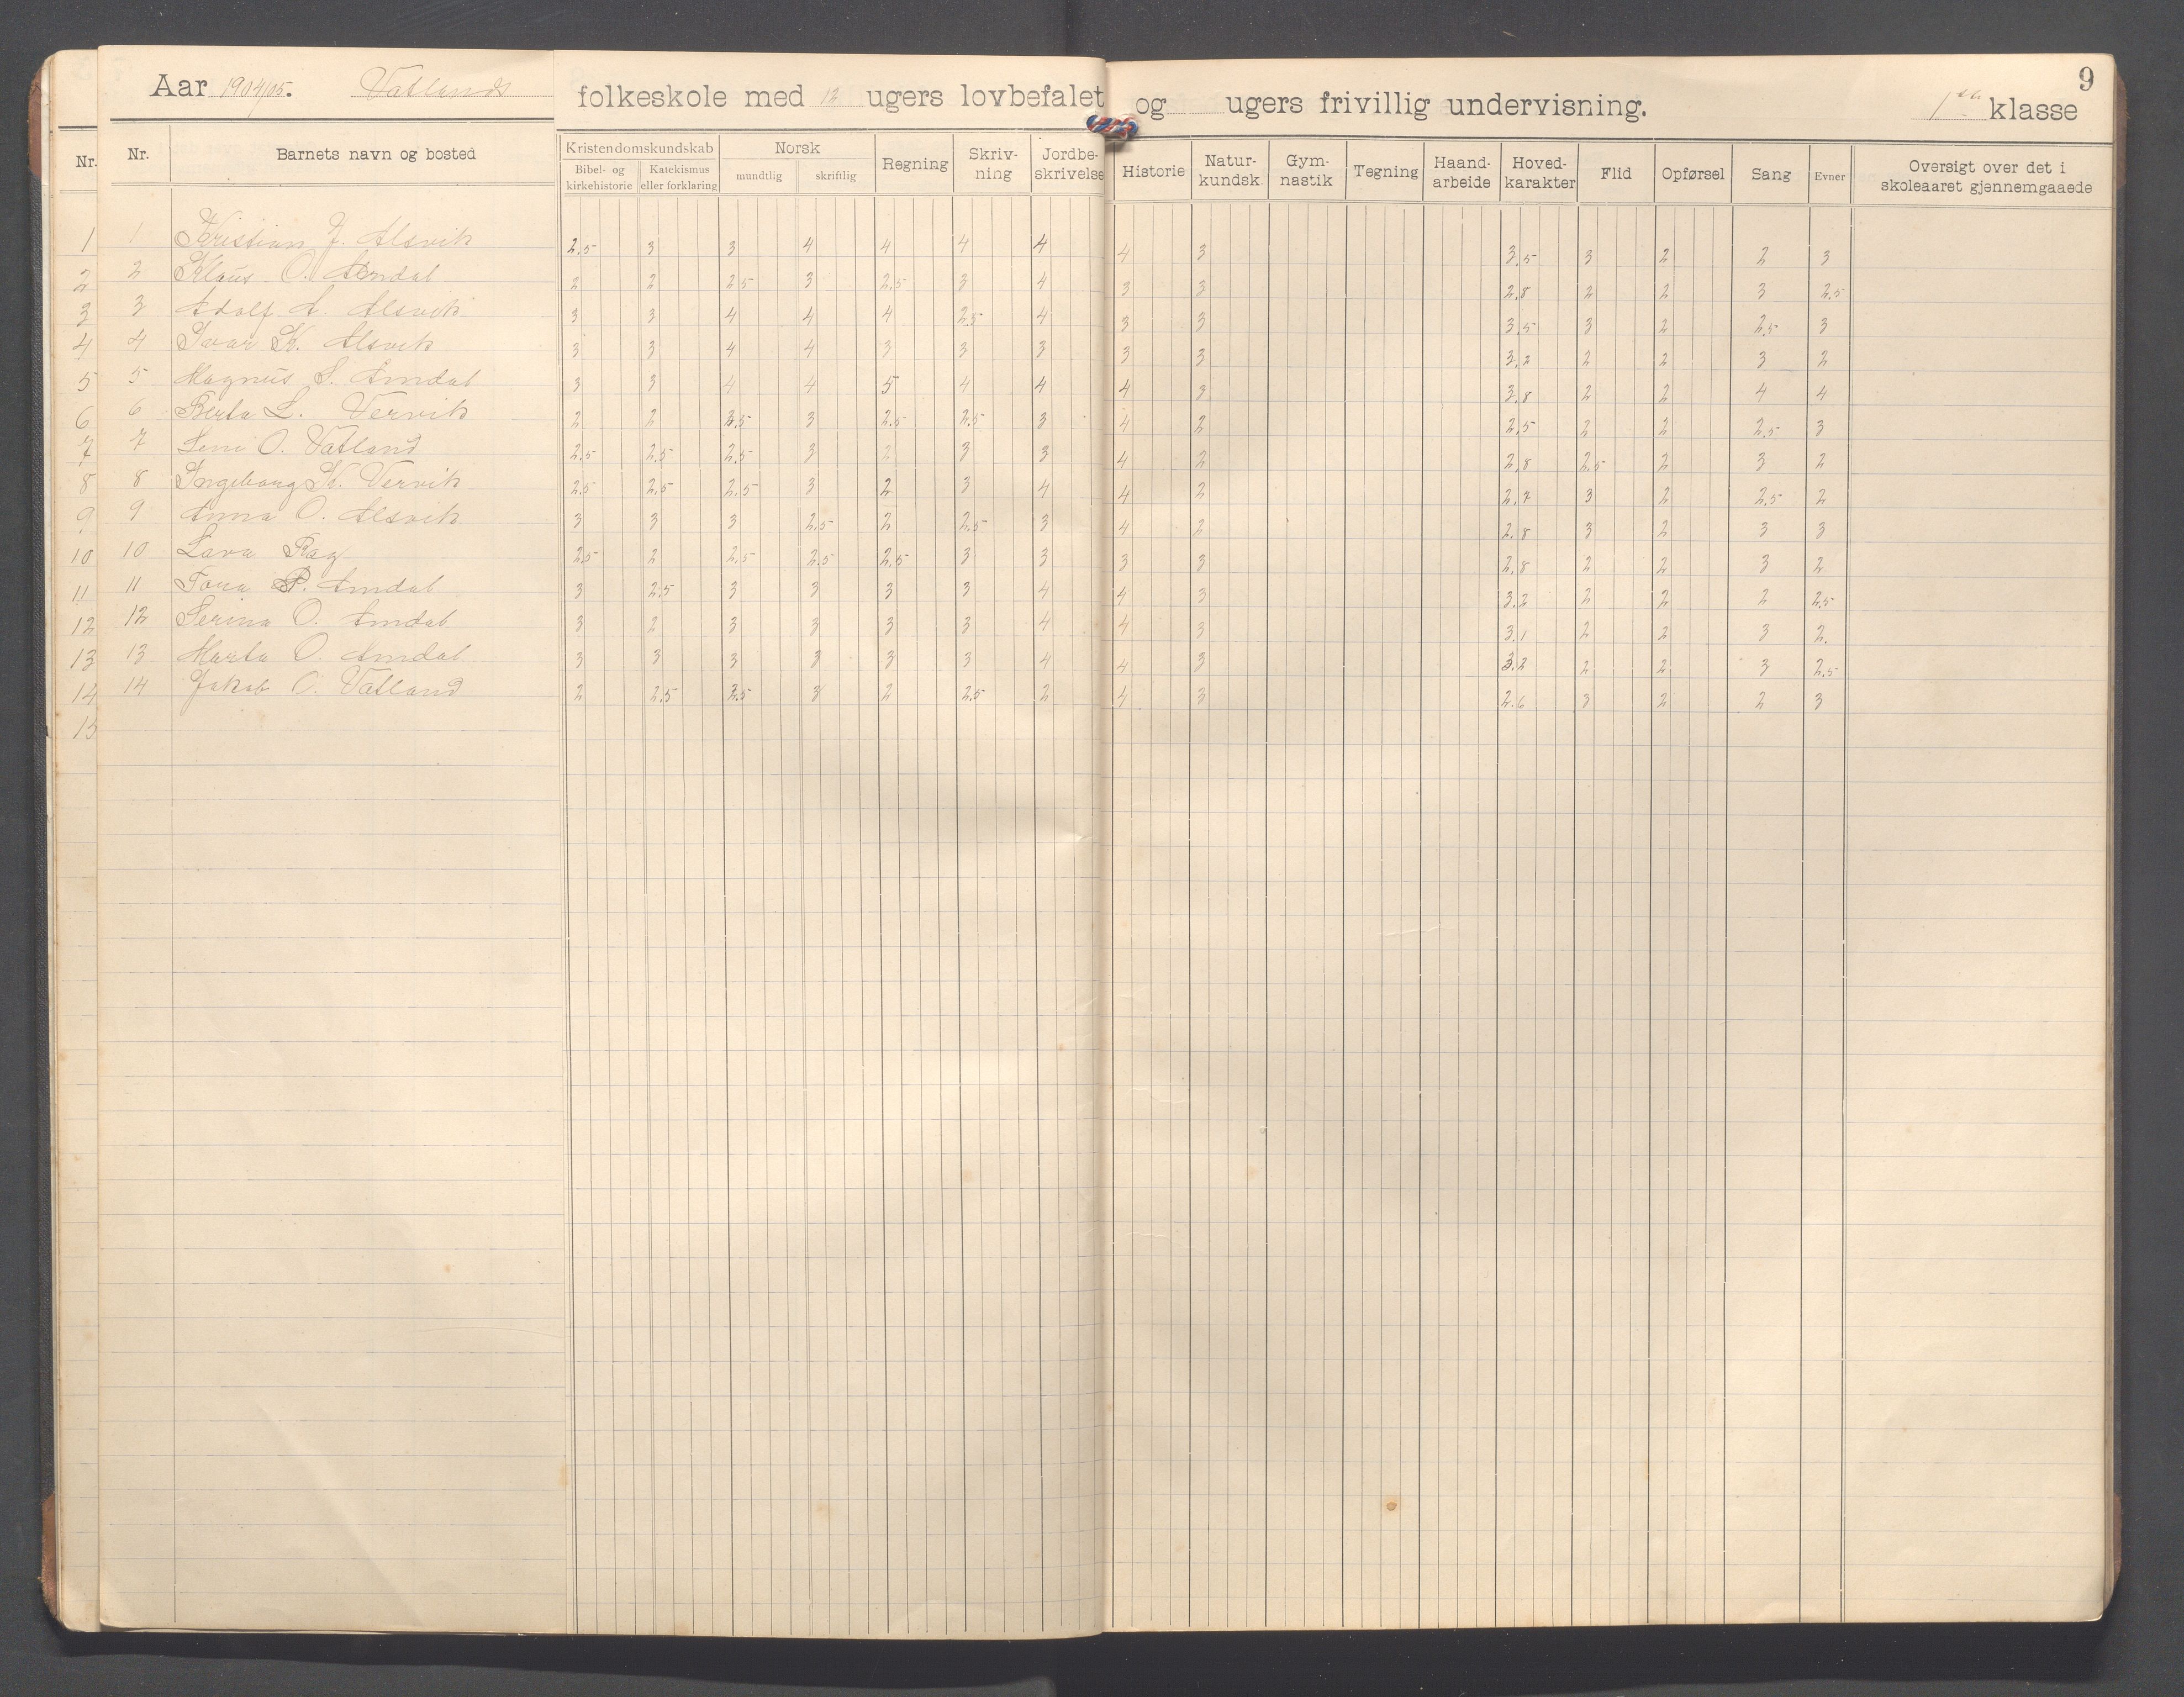 9
Aar 1904/05. Vatlands folkeskole med 12 ugers lovbefalet og ugers frivillig undervisning. 1ste klasse
Nr. Nr. Barnets navn og bosted Kristendomskundskab Norsk Regning Skriv- Jordbe- Historie Natur- Gym- Tegning Haand- Hoved- Flid Opførsel Sang Evner Oversigt over det i
Bibel- og Katekismus mundtlig skriftlig ning skrivelse kundsk nastik arbeide karakter skoleaaret gjennemgaaede
kirkehistorie eller forklaring
1 1 Kristian J. Alsvik 2,5 3 3 4 4 4 4 4 3 3,5 3 2 2 3
2 2 Klaus O. Amdal 2 2 2,5 3 2,5 3 4 3 3 2,8 2 2 3 2,5
3 3 Adolf A. Alsvik 3 3 4 4 4 2,5 4 3 3 3,5 3 2 2,5 3
4 4 Ivar K. Alsvik 3 3 4 4 3 3 3 3 3 3,2 2 2 3 2
5 5 Magnus S. Amdal 3 3 4 4 5 4 4 4 3 3,8 2 2 4 4
6 6 Berta L. Vervik 2 2 2,5 3 2,5 2,5 3 4 2 2,5 2 2 2,5 3
7 7 O. Vatland 2,5 2,5 2,5 3 2 3 3 4 2 2,8 2,5 2 3 2
8 8 Ingeborg K. Vervik 2,5 2,5 2,5 3 2 3 4 4 2 2,7 3 2 2,5 2
9 9 Anna O. Alsvik 3 3 3 2,5 2 2,5 3 4 2 2,8 3 2 3 3
10 10 Lava 2,5 2 2,5 2,5 2,5 3 3 3 3 2,8 2 2 3 2
11 11 Tora P. Amdal 3 2,5 3 3 3 3 4 4 3 3,2 2 2 2 2,5
12 12 Serina O. Amdal 3 2 3 3 3 3 4 4 3 3,1 2 2 3 2.
13 13 Marta O. Amdal 3 3 3 3 3 3 4 4 3 3,2 2 2 3 2,5
14 14 Jakob O. Vatland 2 2,5 2,5 3 2 2,5 2 4 3 2,6 3 2 2 3
15